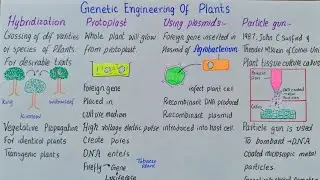 Genetic Engineering Of Plants
Hybridization
Crossing of diff varities
or species of Plants
For desirable traits
king
Kinnow
willowleaf
Vegetative Propagation
For identical plants
Transgenic plants
Protoplast
Whole plant will grow
from protoplast.
foreign gene
Placed in
culture medium
High voltage electric pulse
Create pores
DNA enters
Firefly → Gene
Luciferase
Tobacco
Using plasmid's:-
Foreign gene inserted in
plasmid of Agrobacterium
infect plant cell
Recombinant DNA produced
Recombinant plasmid
introduced into host cell.
Particle gun:-
1987, John C Sanford &
Theodor M Klein of Cornell Uni
Plant tissue culture callus
Particle gun is used
To bombard → DNA
coated microscopic metal
particles